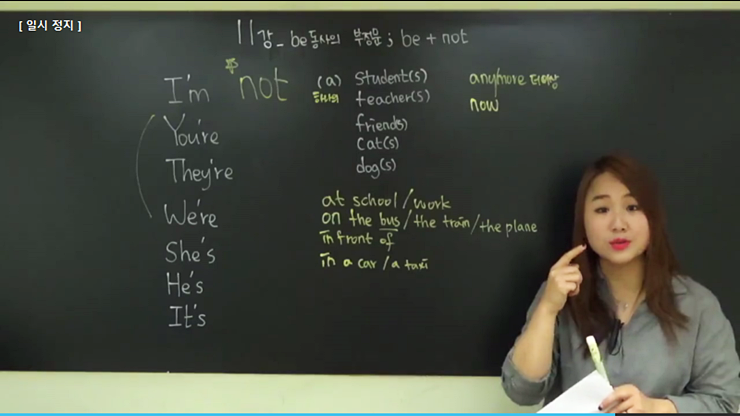 [ 일시 정지 ]
11강_ be동사의 부정문 ; be + not
I'm not (a) student(s) anymore 더이상
You're teacher(s) now
They're friend(s)
We're cat(s)
She's dog(s)
He's at school / work
It's on the bus / the train / the plane
in front of
in a car / a taxi